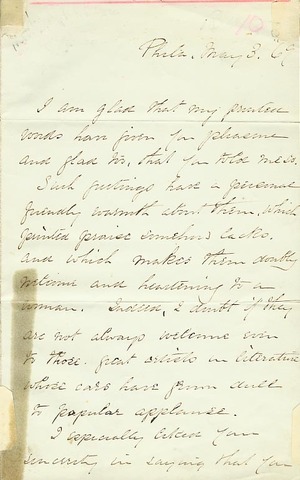 Phila. May 3. 69
I am glad that my printed
words have given you pleasure
and glad too, that you told me so.
Such greetings have a personal
friendly warmth about them, which
printed praise somehow lacks.
and which makes them doubly
welcome and heartening to a
woman. Indeed, I doubt if they
are not always welcome even
to those great artists in literature
whose ears have grown dull
to popular applause.
I especially liked your
sincerity in saying that you